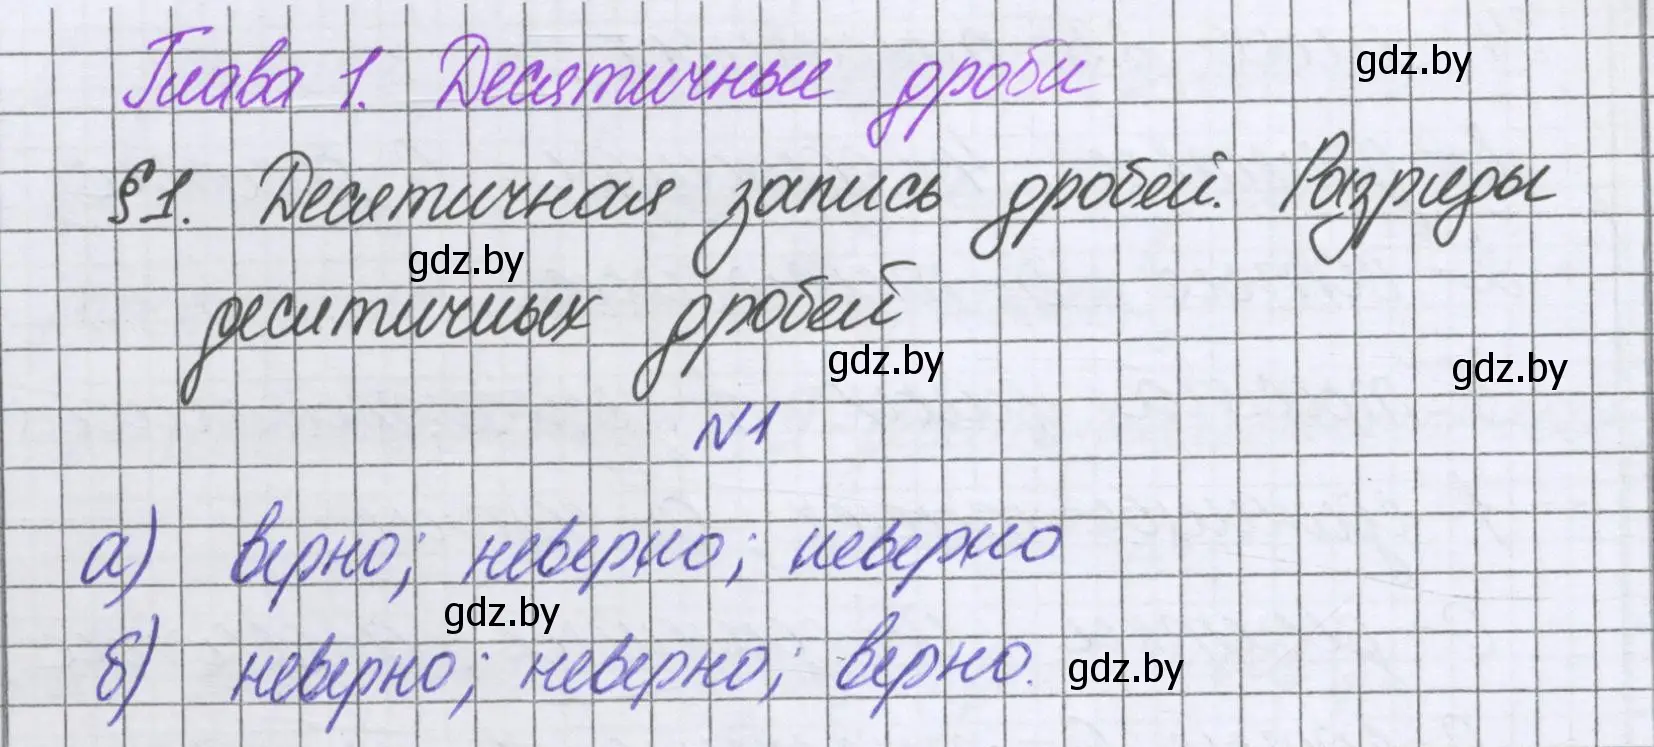 Глава 1. Десятичные дроби
gdz.by
§1. Десятичная запись дробей. Разряды
gdz.by
десятичных дробей
gdz.by
gdz.by
№1
а) верно; неверно; неверно
gdz.by
б) неверно; неверно; верно.
gdz.by